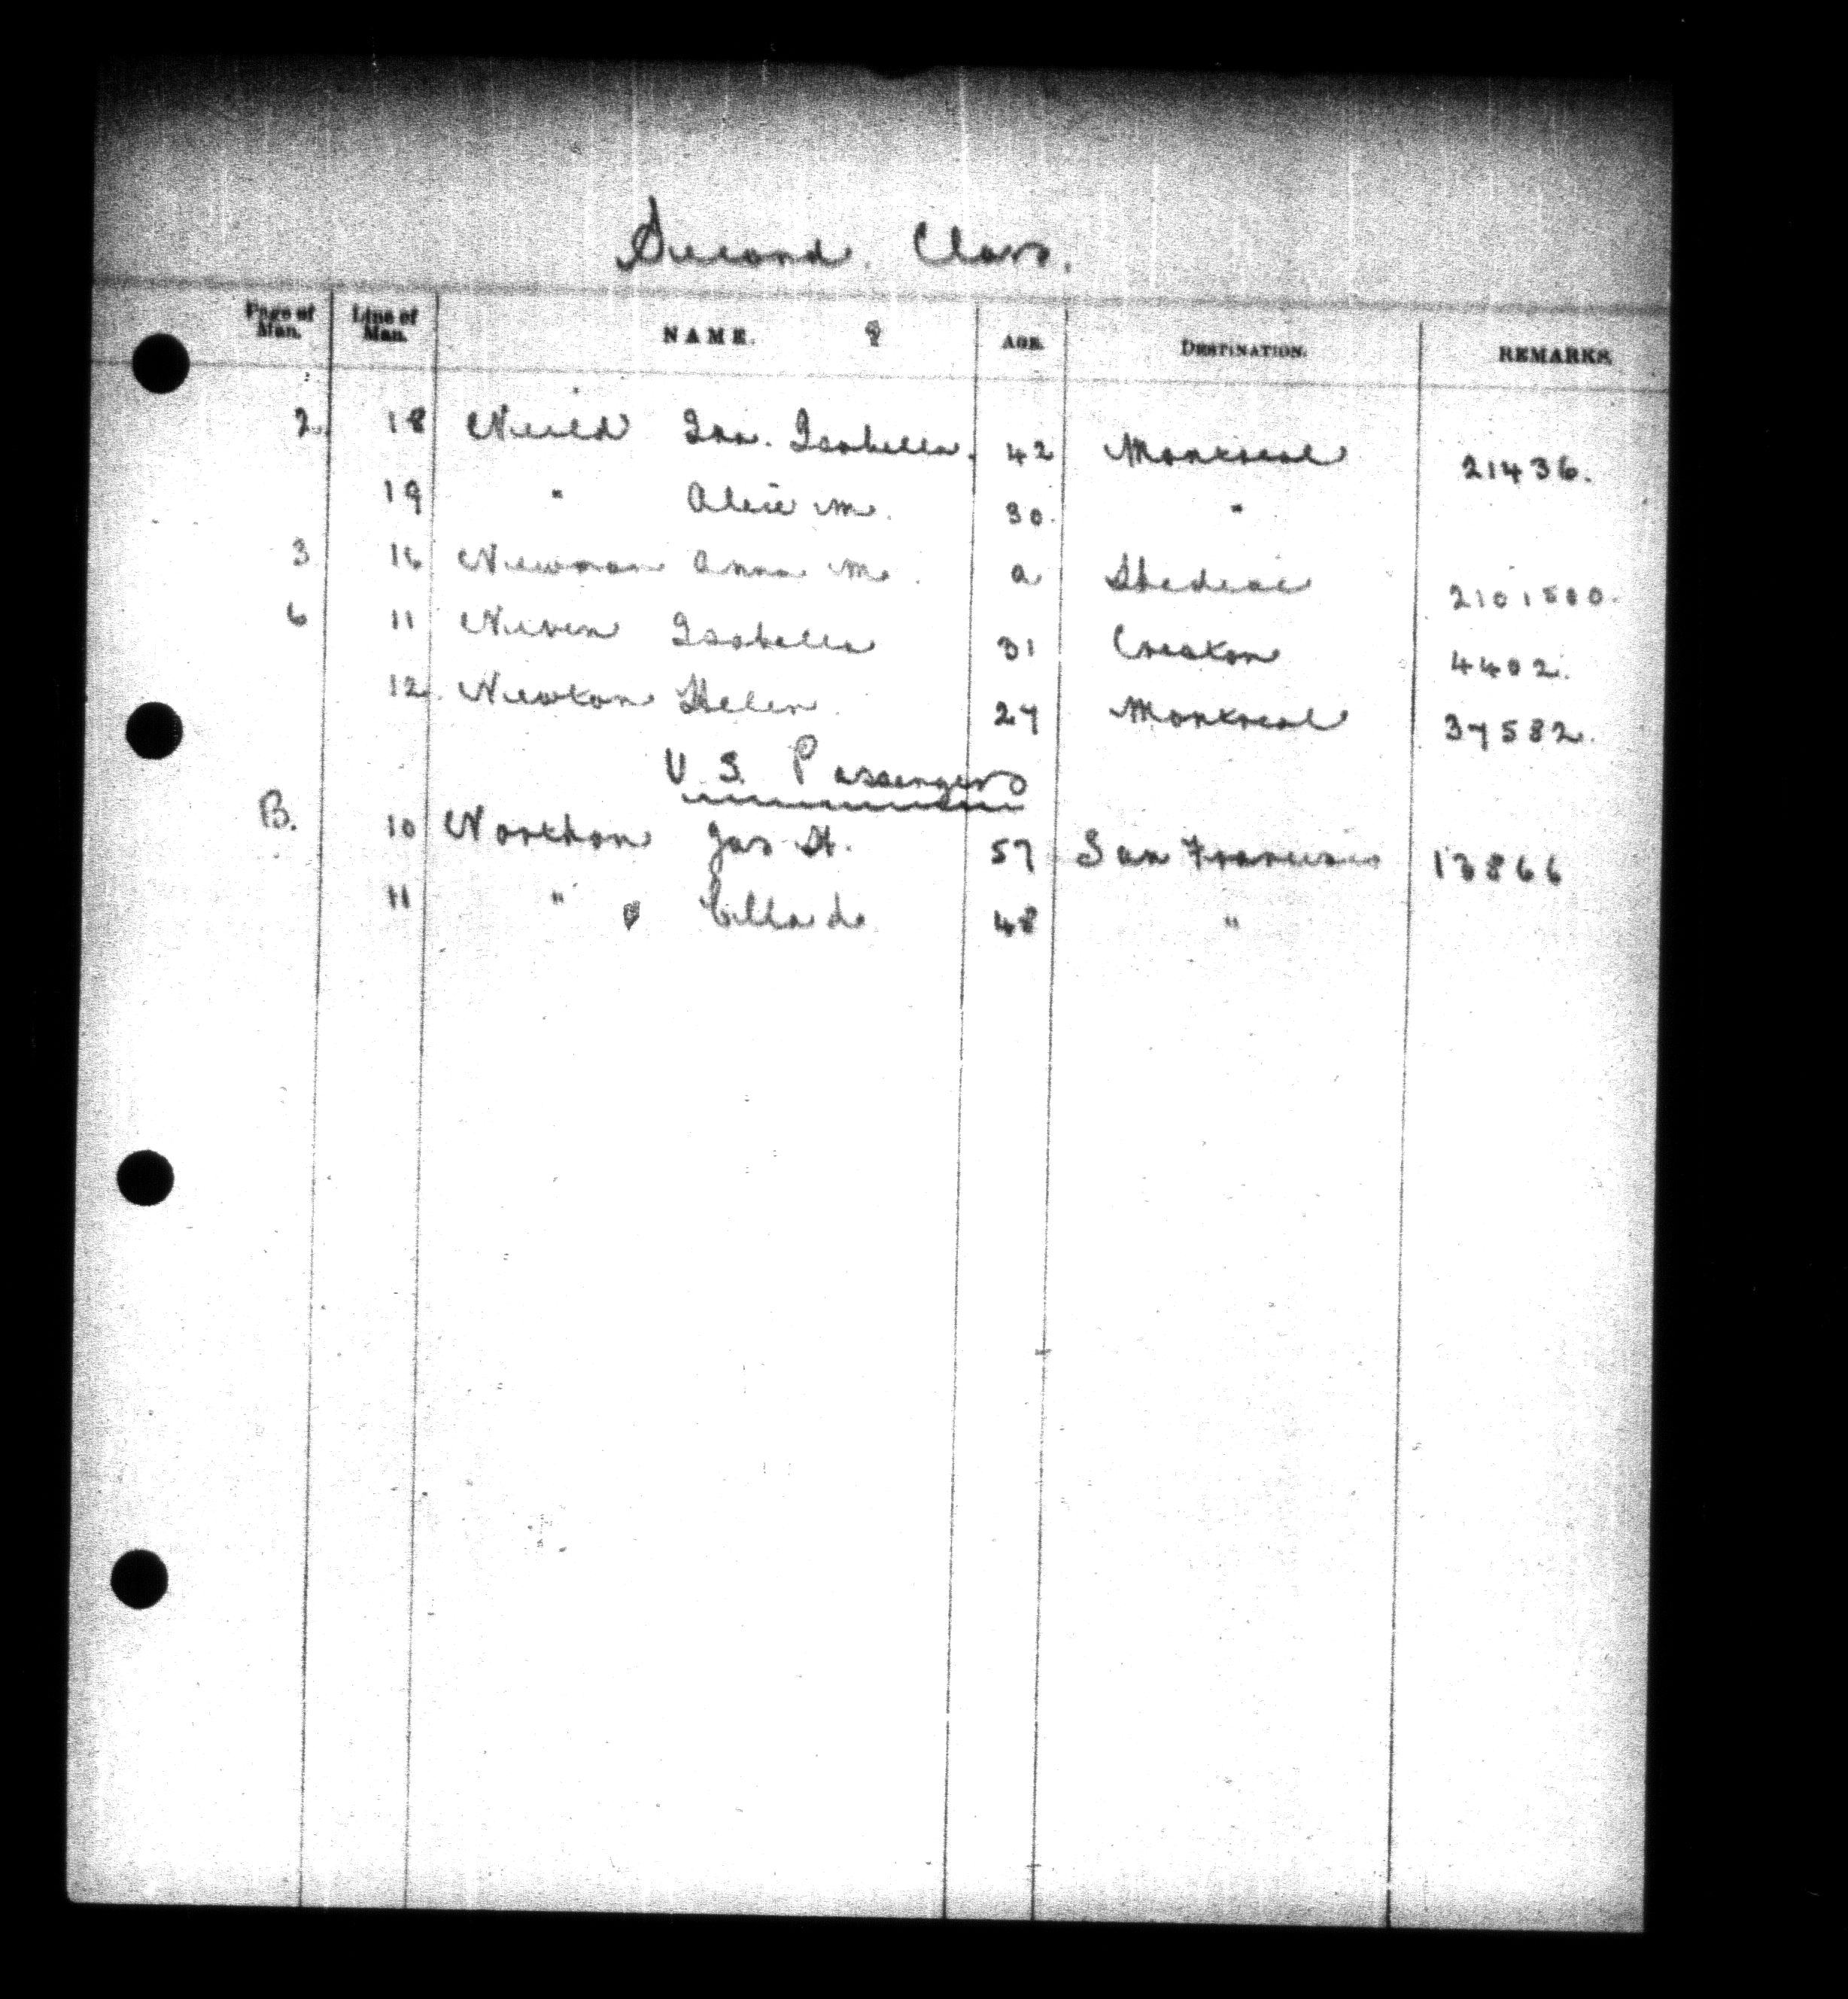 Second Class.
Page of Man. Line of Man. NAME. AGE. DESTINATION. REMARKS.
2 18 Neild Isabella. 42 Montreal 21436.
19 " Alice M. 30. "
3 16 Newman Anna M. a Shediac 2101500.
6 11 Niven Isabella 31 Creston 4402.
12. Newton Helen. 27 Montreal 37582.
U.S. Passengers
B. 10 Northon Jas H. 57 San Francisco 13866
11 " 48 "